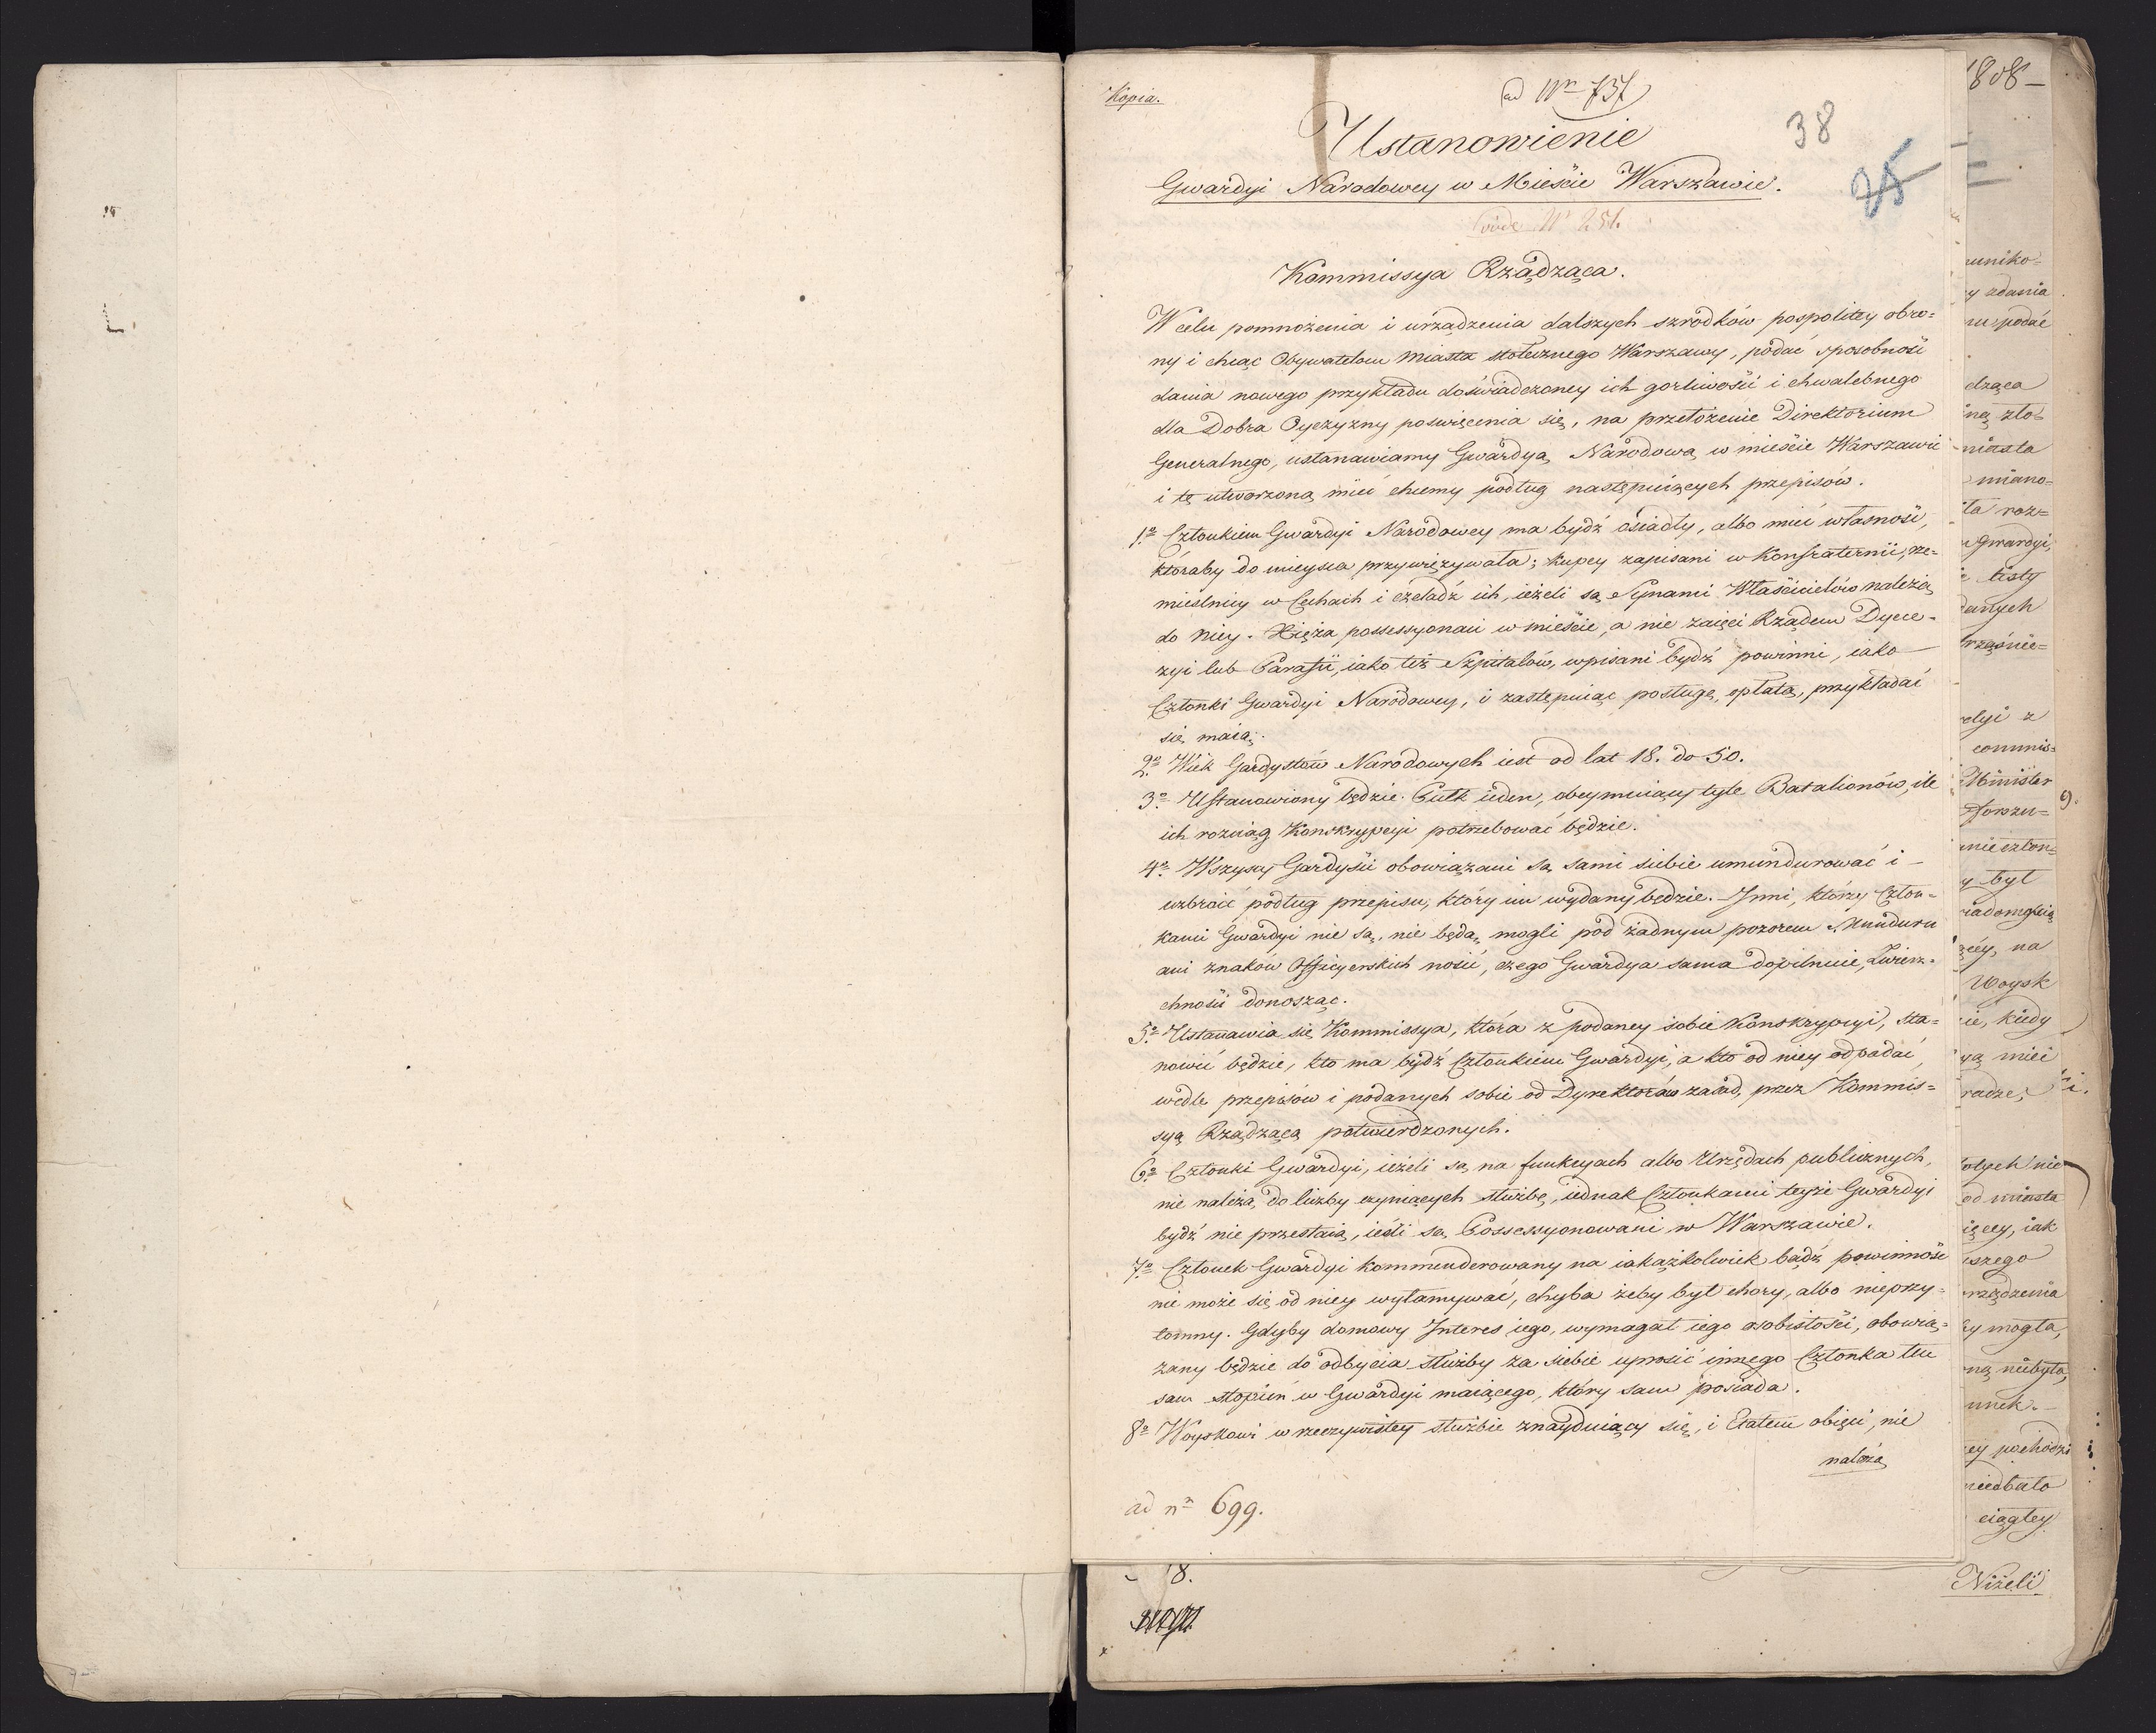 Kopia.
ad Nr 737
38
Ustanowienie
Gwardyi Narodowey w Mieście Warszawie.
25
vide Nr 251.
Kommissya Rządząca.
W celu pomnożenia i urządzenia dalszych szrodków pospolitey obro=
ny i chcąc Obywatelom Miasta stołecznego Warszawy, podać sposobność
dania nowego przykładu doświadczoney ich gorliwości i chwalebnego
dla Dobra Oyczyzny poswięcenia się, na przełożenie Direktorium
Generalnego, ustanawiamy Gwardyą Narodową w mieście Warszawie
i tę utworzoną mieć chcemy podług następuiących przepisów.
1o Członkiem Gwardyi Narodowey ma bydź osiadły, albo mieć własność,
któraby do mieysca przywięzywała; kupcy zapisani w Konfraternii, rze=
mieslnicy w Cechach i czeladź ich, ieżeli są Synami Właścicielów należą
do niey. Xięża possessyonaci w mieście, a nie zaięci Rządem Dyece=
zyi lub Parafii, iako też Szpitalów, wpisani bydź powinni, iako
Członki Gwardyi Narodowey, i zastępuiąc posługę, opłatą, przykładać
się maią.
2o Wiek Gardystów Narodowych iest od lat 18. do 50.
3o Ustanowiony będzie Pułk ieden, obeymuiący tyle Batalionów, ile
ich rozciąg Konskrypcyi potrzebować będzie.
4o Wszyscy Gardyści obowiązani są sami siebie umundurować i
uzbroić podług przepisu, który im wydany będzie. Inni, którzy Człon=
kami Gwardyi nie są, nie będą mogli pod żadnym pozorem Munduru
ani znaków Officyerskich nosić, czego Gwardya sama dopilnuie, Zwierz=
chności donosząc.
5o Ustanawia się Kommissya, która z podaney sobie Konskrypcyi, sta=
nowić będzie, kto ma bydź Członkiem Gwardyi, a kto od niey odpadać
wedle przepisów i podanych sobie od Dyrektorów zasad, przez Kommis=
syą Rządzącą potwierdzonych.
6o Członki Gwardyi, ieżeli są na funkcyach albo Urzędach publicznych,
nie należą do liczby czyniących służbę, iednak Członkami teyże Gwardyi
bydź nie przestaią, ieśli są Possessyonowani w Warszawie.
7o Członek Gwardyi kommenderowany na iakążkolwiek bądź powinność
nie może się od niey wyłamywać, chyba żeby był chory, albo nieprzy=
tomny. Gdyby domowy Interes iego, wymagał iego osobistości, obowią=
zany będzie do odbycia służby za siebie uprosić innego Członka ten
sam stopień w Gwardyi maiącego, który sam posiada.
8o Woyskowi w rzeczywistey służbie znayduiący się, i Etatem obięci, nie
należą
ad no 699.
1808
uniko=
zdania
podać
dząca
miasta
miano=
roz=
gwardyi,
listy
danych
dyi z
commis=
Minister
człon=
był
na
Woysk
kiedy
mieć
radze,
nie
od miasta
ięcey, iak
szego
rządzenia
mogła,
niebyła,
unek.
pochodzi
niedbało
ciągłey
8.
Niżeli